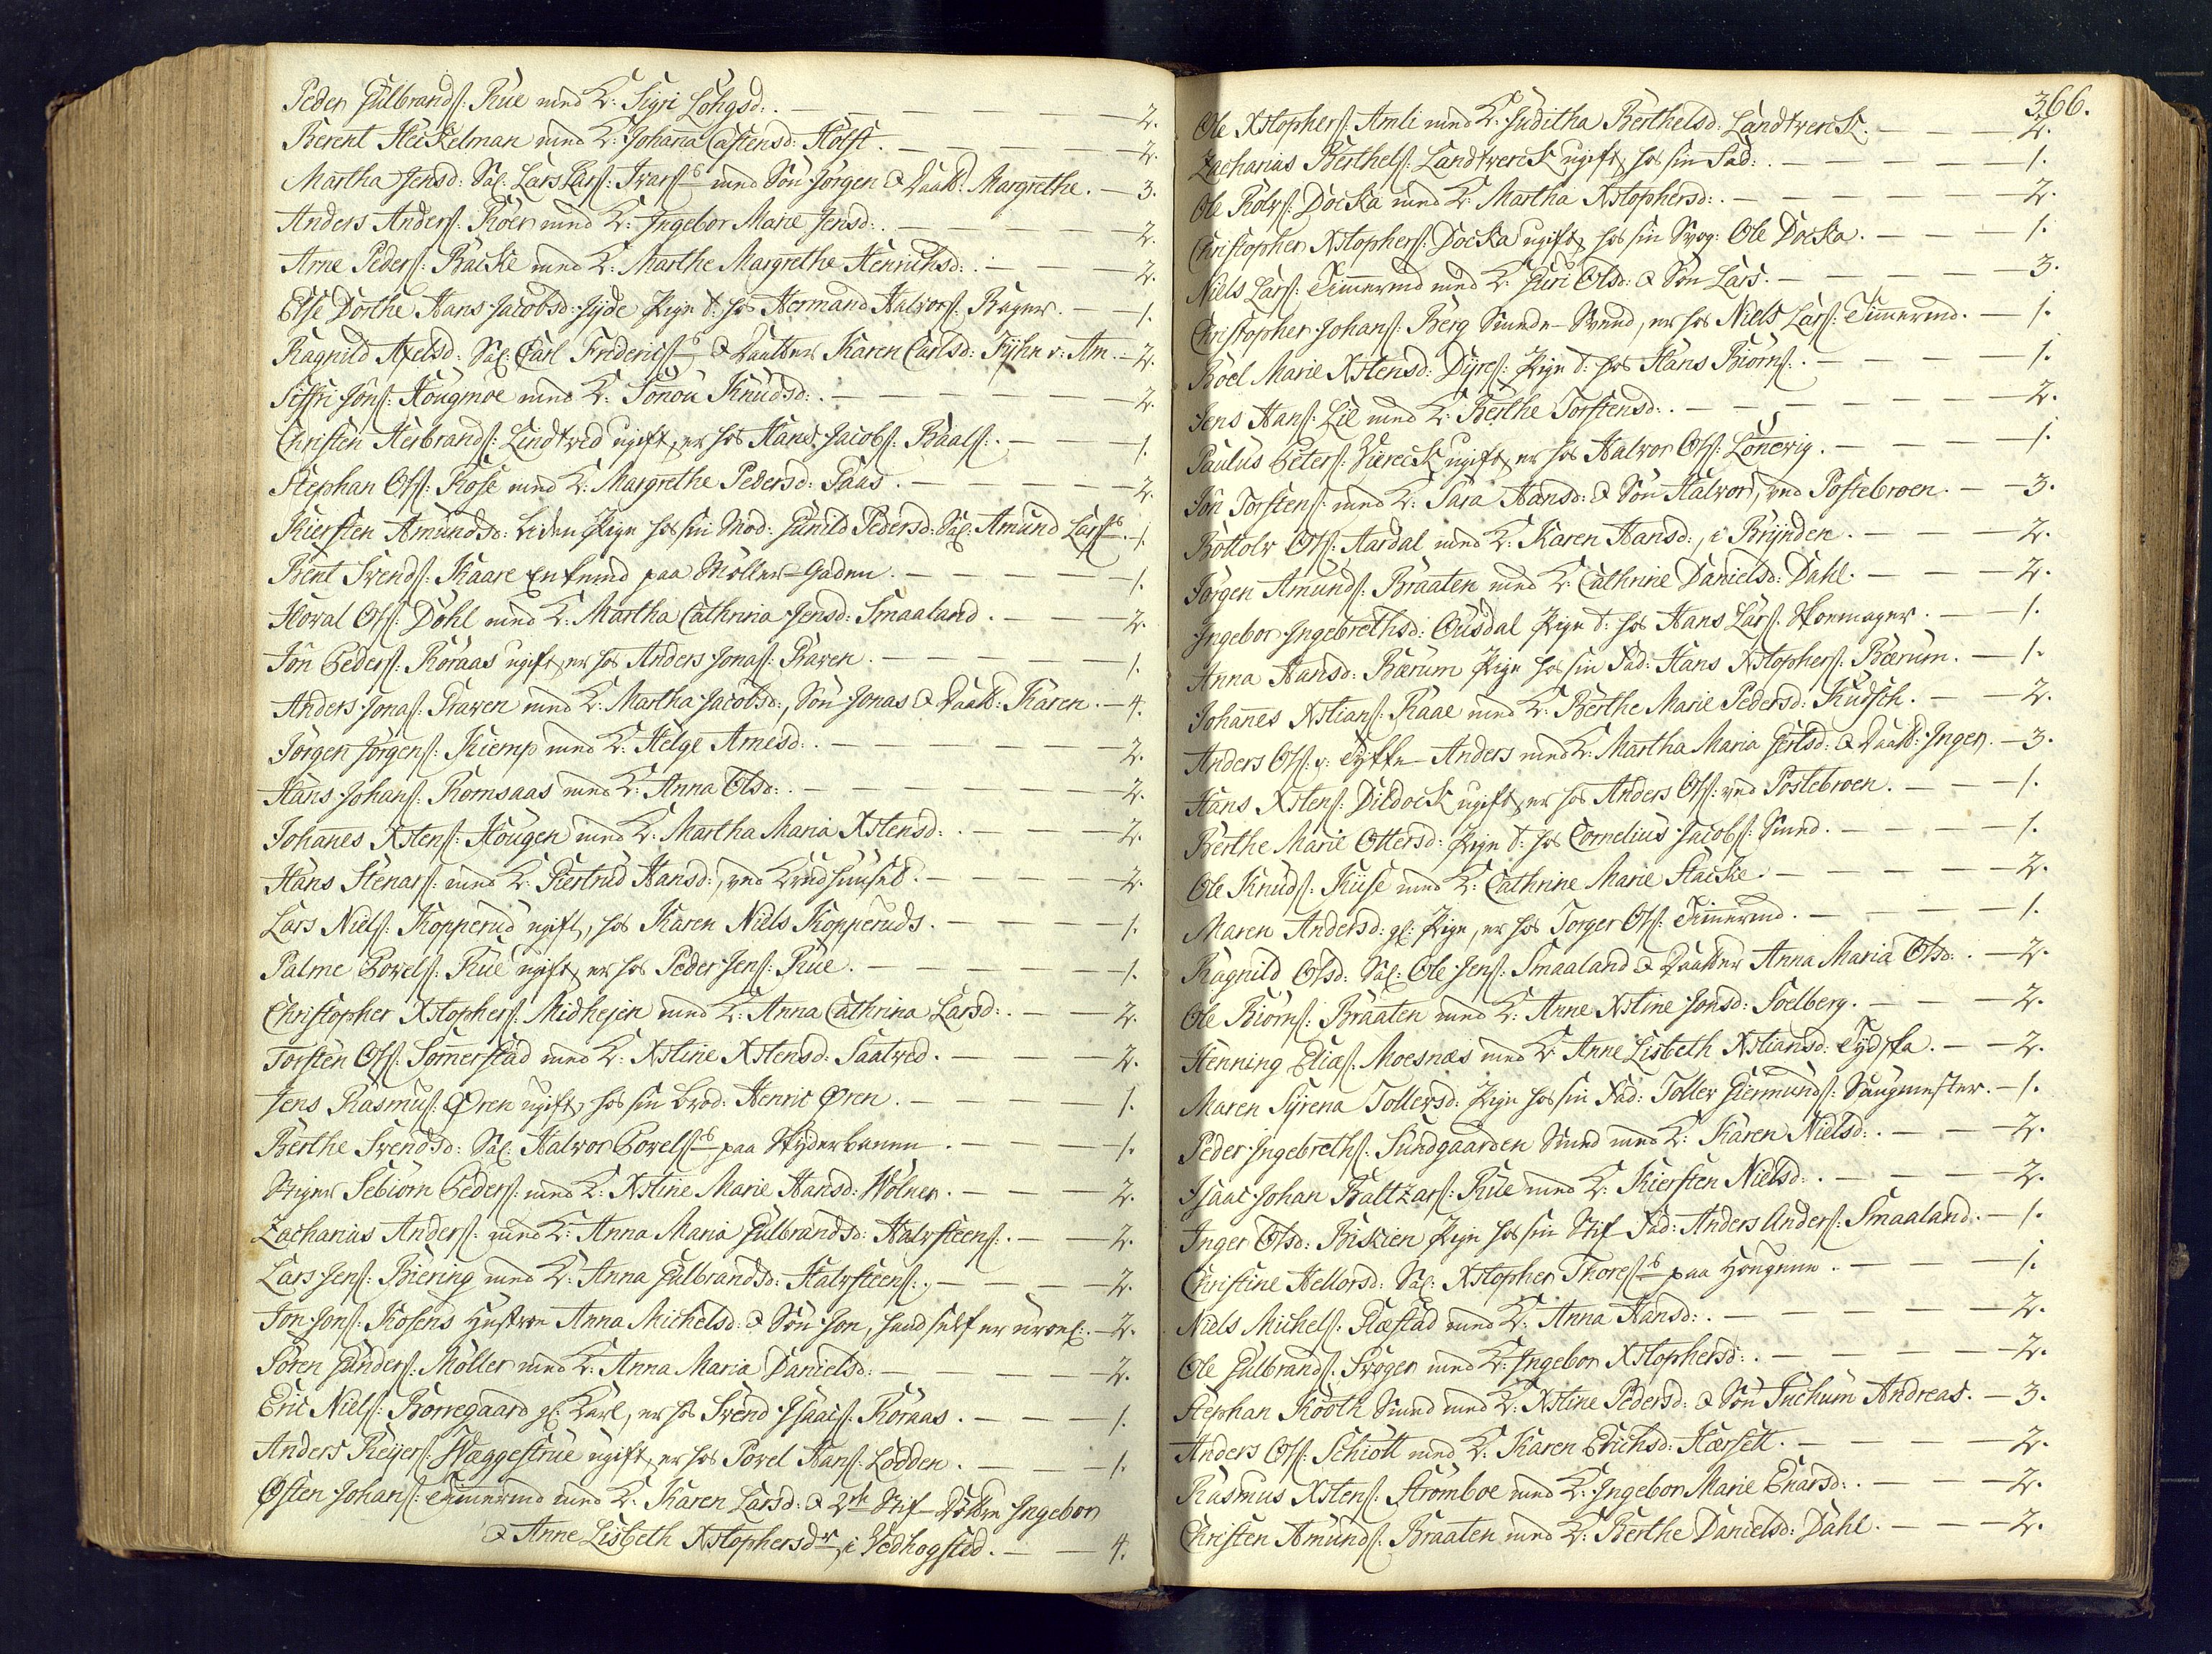 Peder Gulbrands: Rue med K: Sigri Lohgsd: . — 2.
Berent Heckelman med K: Johana Castensd: Holst. — 2.
Martha Jensd: Sal: Lars Lars: Ivars: med Søn Jørgen & Daatt: Margrethe. — 3.
Anders Anders: Roen med K: Ingebor Marie Jensd: . — 2.
Arne Peders: Backe med K: Marthe Margrethe Henrichsd: . — 2.
Else Dorthe Hans Jacobsd: Jyde Pige t: hos Hermand Halvors: Bager. — 1.
Ragnild Axelsd: Sal: Carl Frederics: & Daatter Karen Carlsd: Fyhn v: Am. — 2.
Siffri Jons: Hougmoe med K: Tonou Knudsd: . — 2.
Christen Herbrands: Lindtved ugift, er hos Hans Jacobs: Baals: . — 1.
Stephan Ols: Rose med K: Margrethe Pedersd: Saas. — 2.
Kiersten Amundsd: liden Pige hos sin Mod: Gunild Pedersd: Sal: Amund Lars: . — 1.
Bent Svends: Kaare Enkemd paa Møller-Gaden. — 1.
Hoval Ols: Dohl med K: Martha Cathrina Jensd: Smaaland. — 2.
Jon Peders: Roraas ugift, er hos Anders Jonas: Raven. — 1.
Anders Jonas: Raven med K: Martha Jacobsd:, Søn Jonas & Daatt: Karen. — 4.
Jørgen Jørgens: Kiemp med K: Helge Arnesd: . — 2.
Hans Johans: Romsaas med K: Anna Olsd: . — 2.
Johanes Xstens: Hougen med K: Martha Maria Xstensd: . — 2.
Hans Stenars: med K: Giertrud Hansd:, ved Brudhuuset. — 2.
Lars Niels: Kopperud ugift, hos Karen Niels Kopperuds. — 1.
Palme Povels: Rue ugift, er hos Peder Jens: Rue. — 1.
Christopher Xstophers: Midhejen med K: Anna Cathrina Larsd: . — 2.
Torsten Ols: Somerstad med K: Xstine Xstensd: Saatved. — 2.
Jens Rasmus: Øren ugift, hos sin Brod: Henric Øren. — 1.
Berthe Svendsd: Sal: Halvor Povels: paa Skyderbanen. — 1.
Stiger Sebiorn Peders: med K: Xstine Marie Hansd: Wolner. — 2.
Zacharias Anders: med K: Anna Maria Gulbrandsd: Halvsteens: . — 2.
Lars Jens: Biering med K: Anna Gulbrandsd: Halvsteens: . — 2.
Jon Jons: Rosens Hustroe Anna Michelsd: & Søn Jon, hand self er — 2.
Søren Gunders: Møller med K: Anna Maria Danielsd: — 2.
Eric Niels: Borregaard gl: Karl, er hos Svend Isaacs: Roraas. — 1.
Anders Reyers: Waggestrue ugift, er hos Povel Hans: Lodden. — 1.
Østen Johans: Timermd med K: Karen Larsd: & 2de Stif-Døttre Ingebor
& Anne Lisbeth Xstophersdr i Vedhogsted. — 4.
366.
Ole Xstophers: Amli med K: Juditha Berthelsd: Landtverck. — 2.
Zacharias Berthels: Landtverck ugift, hos sin Fad: . — 1.
Ole Rolvs: Docka med K: Martha Xstophersd: . — 2.
Christopher Xstophers: Docka ugift, hos sin Svog: Ole Docka. — 1.
Niels Lars: Timermd med K: Guri Olsd: & Søn Lars. — 3.
Christopher Johans: Berg Smede-Svend, er hos Niels Lars: Timermd. — 1.
Boel Marie Xstensd: Dyres: Pige t: hos Hans Biorns: . — 1.
Jens Hans: Lie med K: Berthe Torstensd: . — 2.
Paulus Peters: Viereck ugift, er hos Halvor Ols: Lonevig. — 1.
Jon Torstens: med K: Sara Hansd: & Søn Halvor, ved Postebroen. — 3.
Bottolv Ols: Aardal med K: Karen Hansd:, i Brynden. — 2.
Jørgen Amunds: Braaten med K: Cathrine Danielsd: Dahl. — 2.
Ingebor Ingebrethsd: Ousdal Pige t: hos Hans Lars: Skoemager. — 1.
Anna Hansd: Bærum Pige hos sin Fad: Hans Xstophers: Bærum. — 1.
Johannes Xstians: Raae med K: Berthe Marie Pedersd: Kudsch. — 2.
Anders Ols: v: Tyske-Anders med K: Martha Maria Gertsd: & Daatt: Inger. — 3.
Hans Xstens: Dildock ugift, er hos Anders Ols: ved Postebroen. — 1.
Berthe Marie Ottersd: Pige t: hos Cornelius Jacobs: Smed. — 1.
Ole Knuds: Kiise med K: Cathrine Marie Stacke. — 2.
Maren Andersd: gl: Pige, er hos Torger Ols: Timermd. — 1.
Ragnild Olsd: Sal: Ole Jens: Smaaland & Daatter Anna Maria Olsd: . — 2.
Ole Biorns: Braaten med K: Anne Xstine Jonsd: Soelberg. — 2.
Henning Elias: Moesnæs med K: Anne Lisbeth Xstiansd: Tydska. — 2.
Maren Syrena Tollersd: Pige hos sin Fad: Toller Giermunds: Saugmester. — 1.
Peder Ingebreths: Sundgaarden Smed med K: Karen Nielsd: . — 2.
Isaac Johan Baltzars: Rue med K: Kiersten Nielsd: . — 2.
Inger Olsd: Biskien Pige hos sin Stif-Fad: Anders Anders: Smaaland. — 1.
Christine Hellorsd: Sal: Xstopher Thores: paa Hougene. — 1.
Niels Michels: Ræstad med K: Anna Hansd: . — 2.
Ole Gulbrands: Svogen med K: Ingebor Xstophersd: . — 2.
Stephan Kooth Smed med K: Xstine Pedersd: & Søn Juchum Andreas. — 3.
Anders Ols: Schiøtt med K: Karen Erichsd: Hærsett. — 2.
Rasmus Xstens: Stromboe med K: Ingebor Marie Enarsd: . — 2.
Christen Amunds: Braaten med K: Berthe Danielsd: Dahl. — 2.